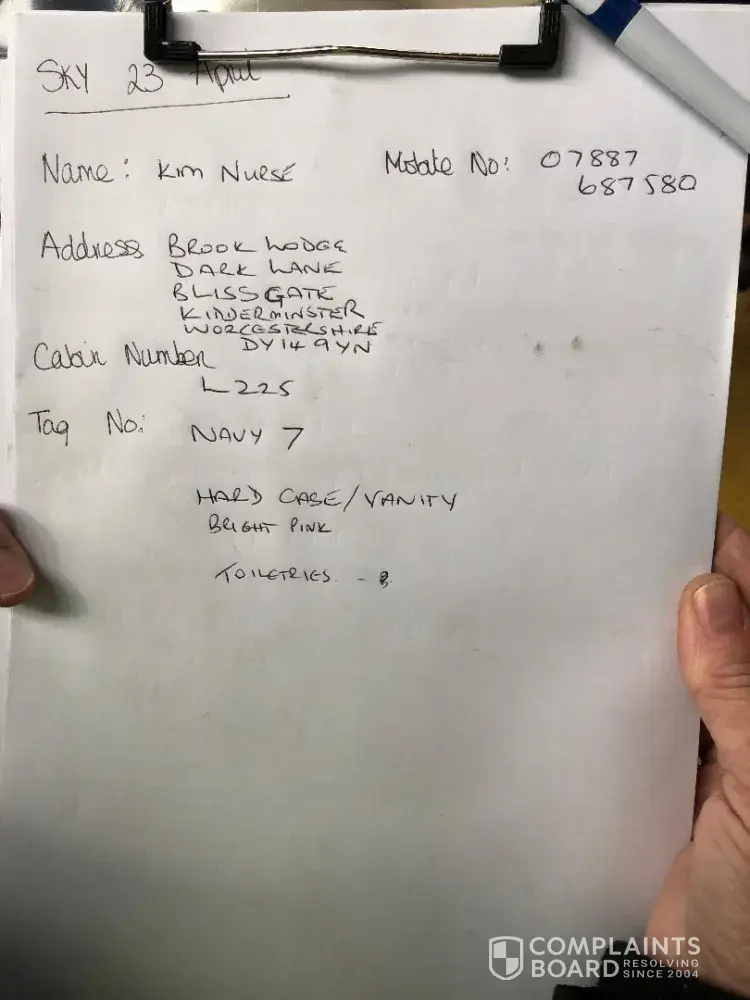 SKY 23 April
Name: Kim Nurse
Mobile No: 07887
687580
Address BROOK LODGE
DARK LANE
BLISSGATE
KIDDERMINSTER
WORCESTERSHIRE
DY14 9YN
Cabin Number
L225
Tag No: NAVY 7
HARD CASE/VANITY
BRIGHT PINK
TOILETRIES -
COMPLAINTS
BOARD RESOLVING
SINCE 2004